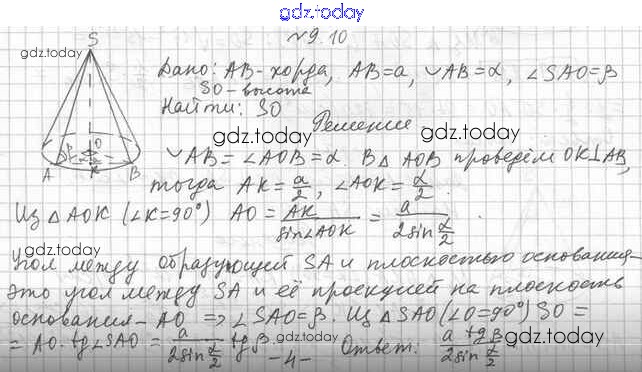 gdz.today
№9.10
S
gdz.today
Дано: AB-хорда, AB=a, ◡AB=α, ∠SAO=β
SO-высота
Найти: SO
gdz.today
Решение
gdz.today
A K B O β
◡AB=∠AOB=α. В △AOB проведём OK⊥AB,
тогда AK=a/2, ∠AOK=α/2.
gdz.today
Из △AOK (∠K=90°) AO = AK/sin∠AOK = a/2sin α/2.
gdz.today
gdz.today
Угол между образующей SA и плоскостью основания-
это угол между SA и её проекцией на плоскость
основания - AO => ∠SAO=β. Из △SAO(∠O=90°) SO =
= AO·tg∠SAO = a/2sin α/2 tgβ. Ответ: a tgβ/2sin α/2.
gdz.today
gdz.today
-4-